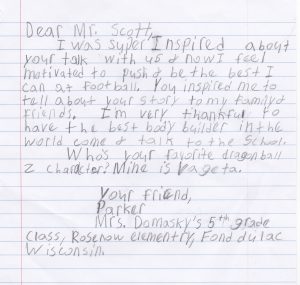 Dear Mr. Scott,
I was super Inspired about
your talk with us & now I feel
motivated to push & be the best I
can at football. You inspired me to
tell about your story to my family &
friends. I'm very thankful to
have the best body builder in the
world come & talk to the School.
Who's your favorite dragonball
Z character? Mine is vageta.
Your friend,
Parker
Mrs. Domasky's 5th grade
Class, Rosenow elementry, Fond du lac
Wisconsin.